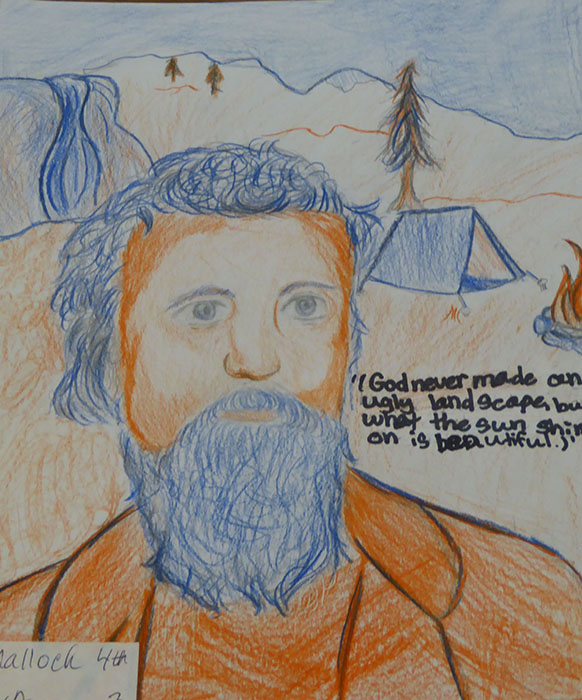 "(God never made an
ugly landscape, bu
what the sun shin
on is beautiful.)"
allock 4th